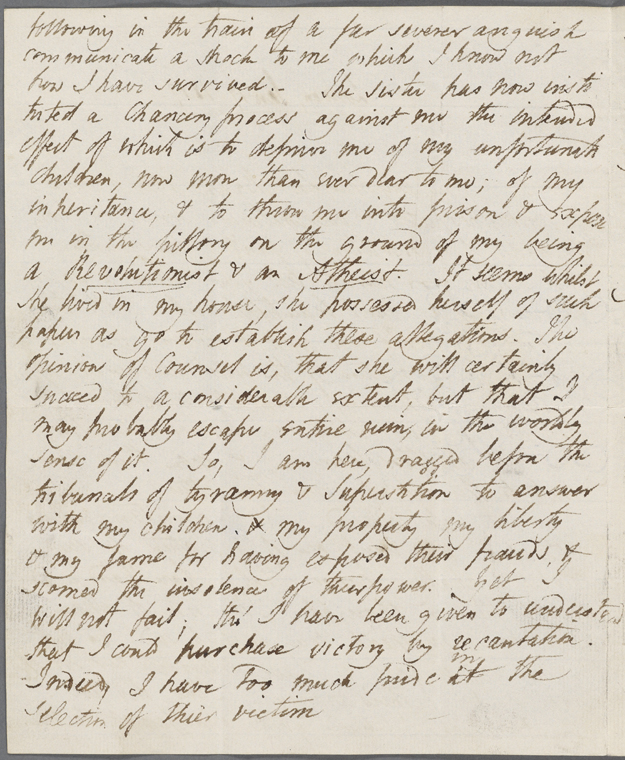 following in the train of a far severer anguish
communicate a shock to me which I know not
how I have survived. – The sister has now insti
tuted a Chancery process against me the intended
effect of which is to deprive me of my unfortunate
children, now more than ever dear to me; of my
inheritance, & to throw me into prison & expose
me in the pillory on the ground of my being
a Revolutionist & an Atheist. It seems whilst
she lived in my house, she possessed herself of such
papers as go to establish these allegations. The
opinion of Counsel is, that she will certainly
succeed to a considerable extent, but that I
may probably escape entire ruin, in the worldly
sense of it. So, I am here, dragged before the
tribunals of tyranny & superstition to answer
with my children & my property my liberty
& my fame for having exposed their frauds, &
scorned the insolence of their power. Yet I
will not fail; tho' I have been given to understand
that I could purchase victory by recantation.
Indeed, I have too much pride in the
selection of thier victim